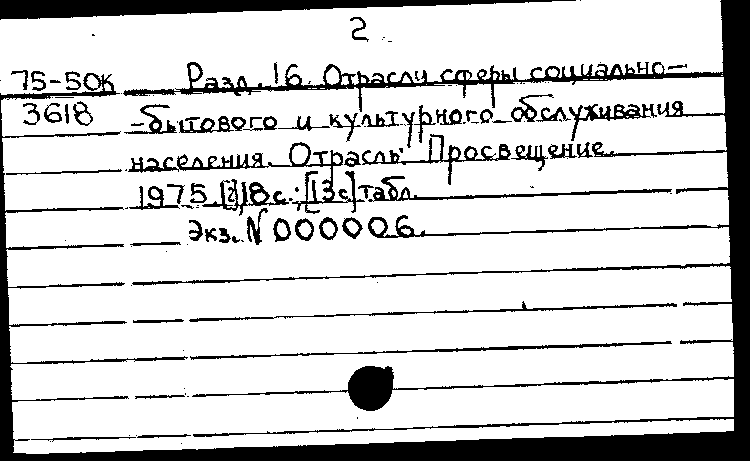 2
75-50к Разд. 16. Отрасли сферы социально-
3618 -бытового и культурного обслуживания
населения. Отрасль: Просвещение.
1975. [2],18с.; [13с] табл.
Экз. N 000006.